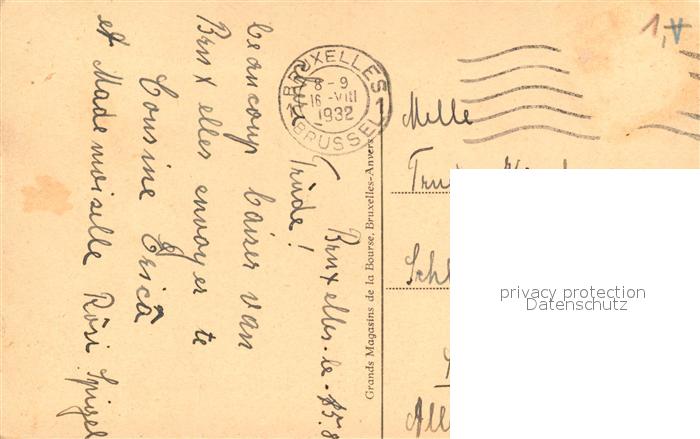 1,
BRUXELLES
8-9
16-VIII
1932
BRUSSEL
1
Bruxelles. le. 15.8
Trüde!
beaucoup baiser van
Bruxelles envoyer te
Cousine Erica
et Mademoiselle Rösi Spigel
Grands Magasins de la Bourse, Bruxelles-Anvers
Melle
Schl
All
privacy protection
Datenschutz